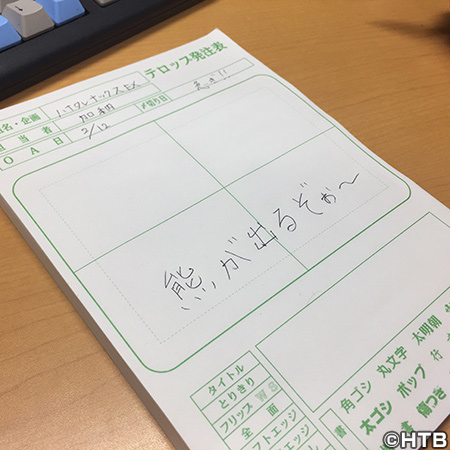 テロップ発注表
組名・企画 ハナタレナックスEX
担当者 加藤 〆切り日 急ぎ!!
OA日 2/12
熊が出るぞぉ〜
タイトル
とりきり
フリップ WS
全面
フトエッジ
角ゴシ 丸文字 太明朝
太ゴシ ポップ 行
書
©HTB